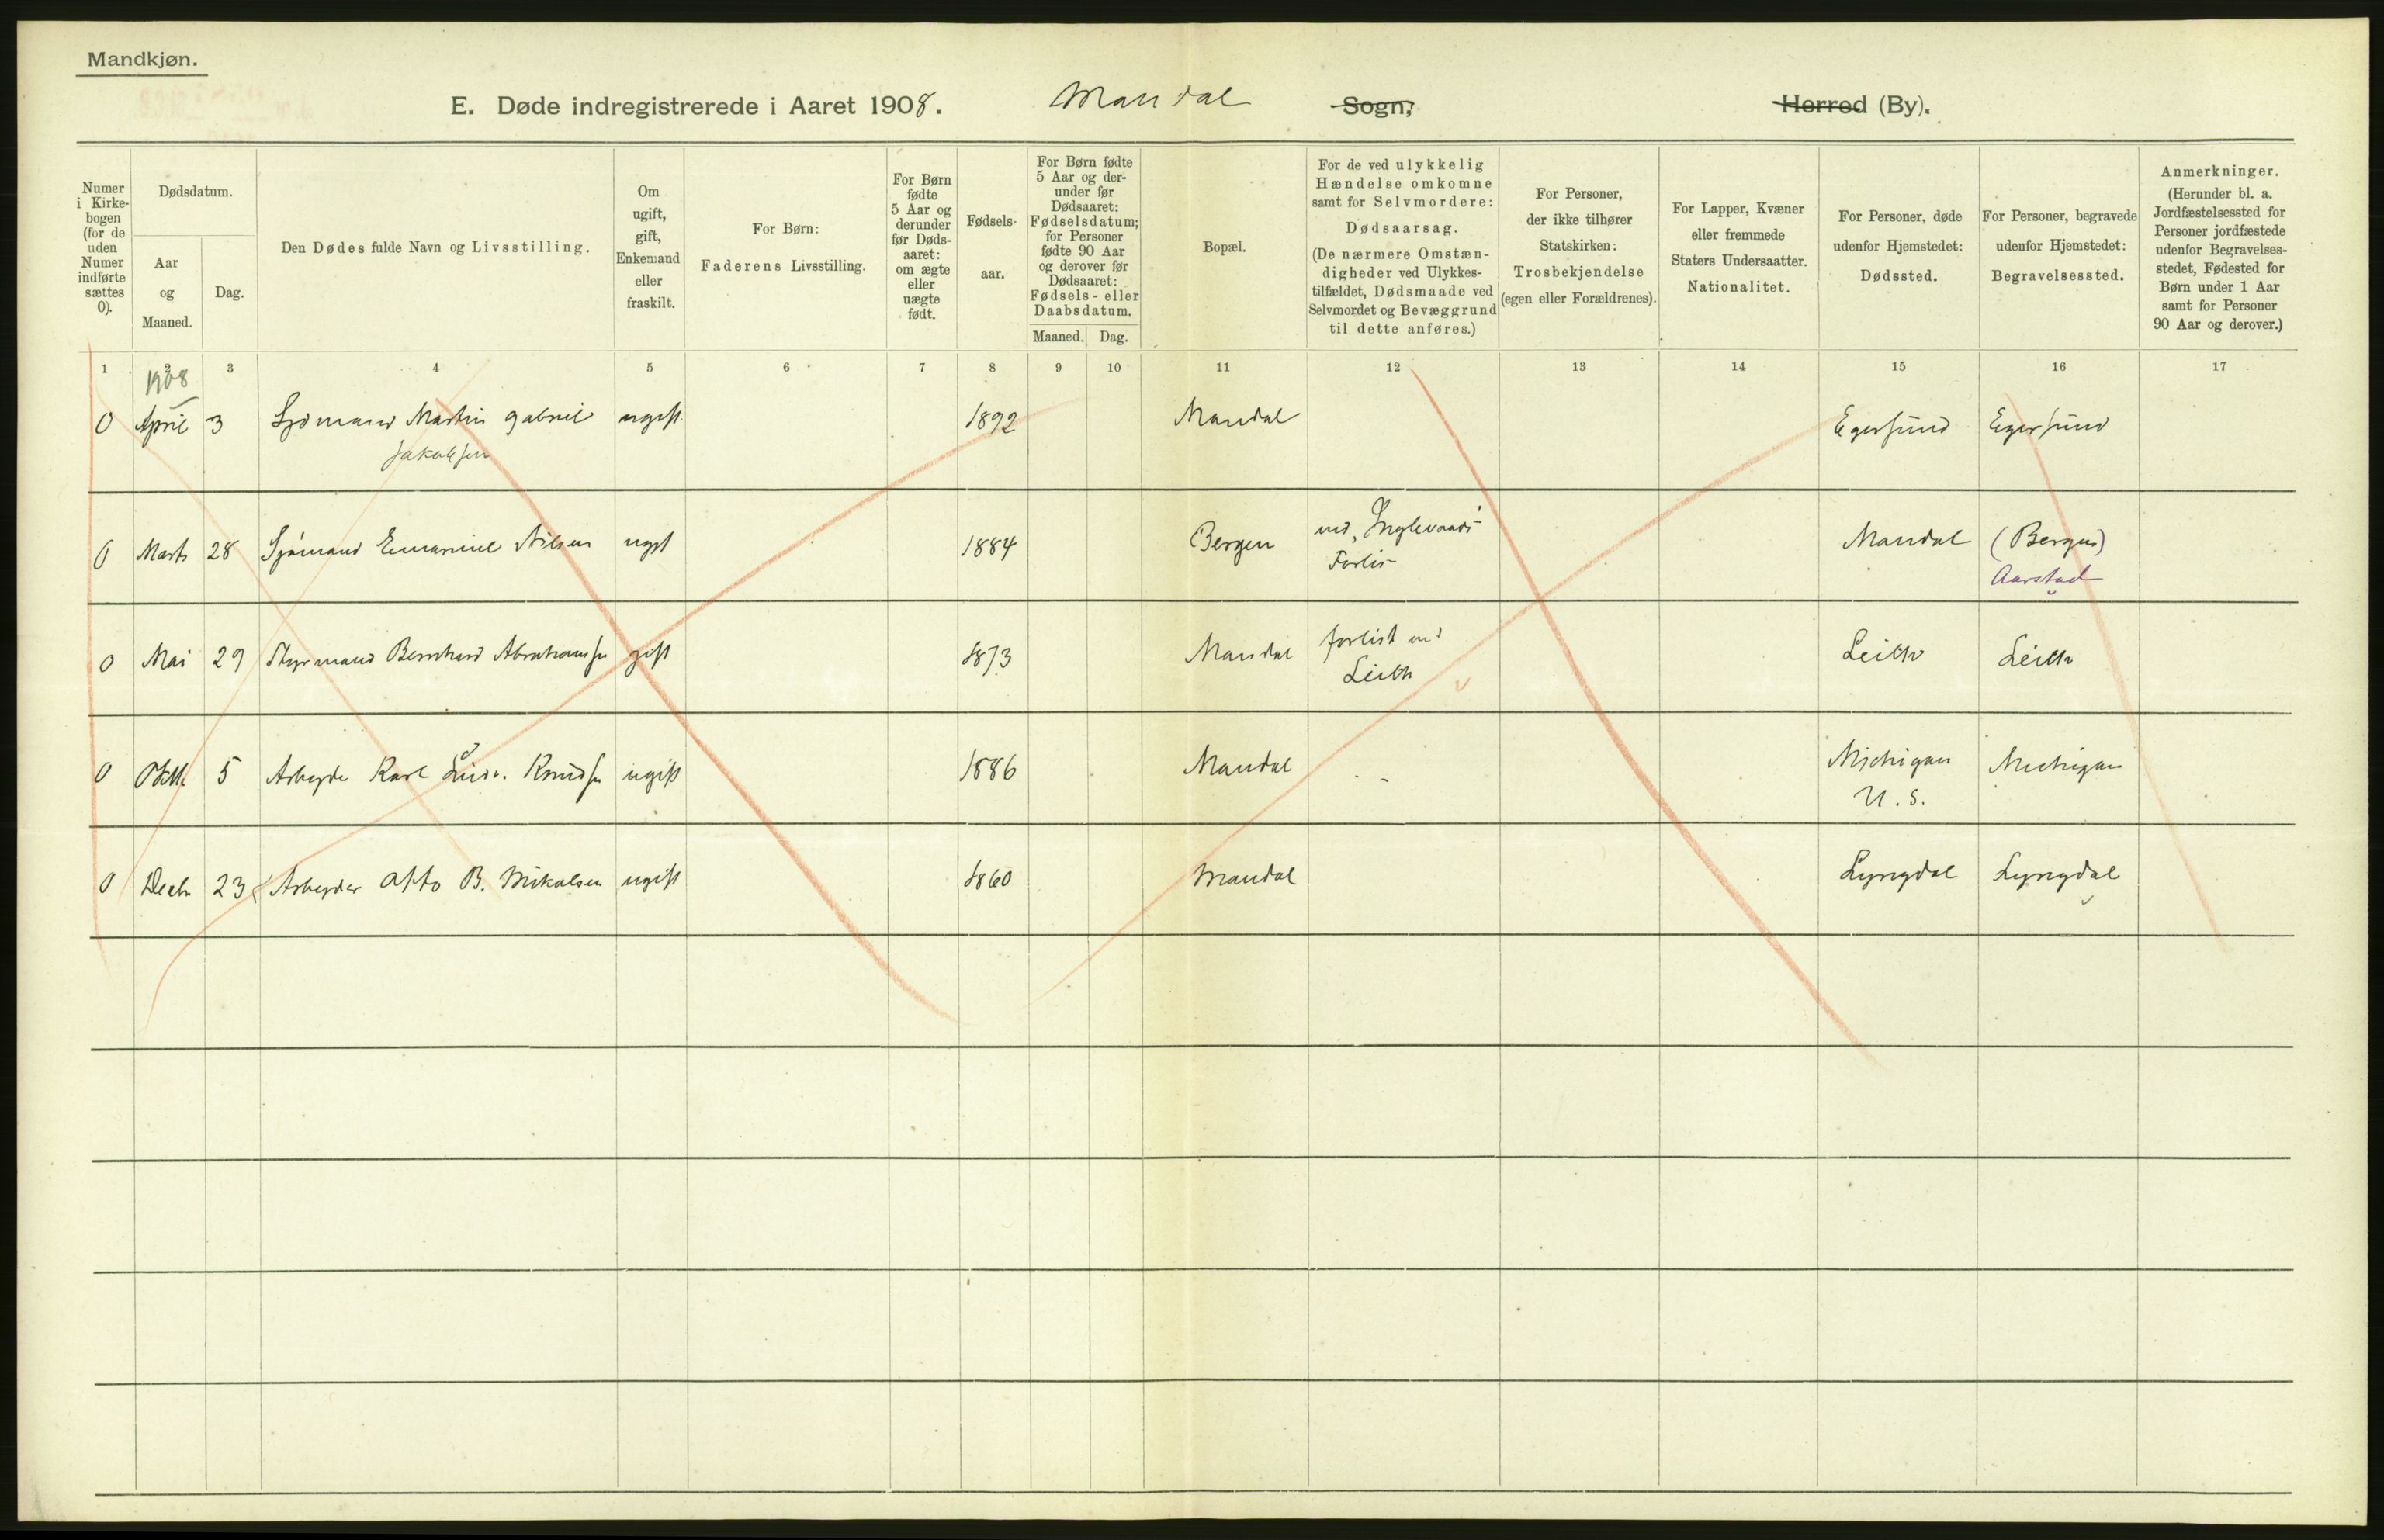 Mandkjøn.
E. Døde indregistrerede i Aaret 1908. Mandal Sogn, Herred (By).
Numer i Kirke- bogen (for de uden Numer indførte sættes 0).
Dødsdatum.
Aar og Maaned.
Dag.
Den Dødes fulde Navn og Livsstilling.
Om ugift, gift, Enkemand eller fraskilt.
For Børn: Faderens Livsstilling.
For Børn fødte 5 Aar og derunder før Døds- aaret: om ægte eller uægte født.
Fødsels- aar.
For Børn fødte 5 Aar og der- under før Dødsaaret: Fødselsdatum; for Personer fødte 90 Aar og derover før Dødsaaret: Fødsels- eller Daabsdatum.
Maaned. Dag.
Bopæl.
For de ved ulykkelig Hændelse omkomne samt for Selvmordere: Dødsaarsag. (De nærmere Omstæn- digheder ved Ulykkes- tilfældet, Dødsmaade ved Selvmordet og Bevæggrund til dette anføres.)
For Personer, der ikke tilhører Statskirken: Trosbekjendelse (egen eller Forældrenes).
For Lapper, Kvæner eller fremmede Staters Undersaatter. Nationalitet.
For Personer, døde udenfor Hjemstedet: Dødssted.
For Personer, begravede udenfor Hjemstedet: Begravelsessted.
Anmerkninger. (Herunder bl. a. Jordfæstelsessted for Personer jordfæstede udenfor Begravelses- stedet, Fødested for Børn under 1 Aar samt for Personer 90 Aar og derover.)
1 2 3 4 5 6 7 8 9 10 11 12 13 14 15 16 17
1908
0 April 3 Sjømand Martin Gabriel ugift 1892 Mandal Egersund Egersund
Jakobsen
0 Marts 28 Sjømand Emanuel Nilsen ugift 1884 Bergen ved Mandal (Bergen)
Forlis Aarstad
0 Mai 29 Styrmand Bernhard Abrahamsen gift 1873 Mandal forlist ved Leith Leith
Leith
0 Oktbr. 5 Arbeyder Karl Knudsen ugift 1886 Mandal - Michigan Michigan
U. S.
0 Decbr 23 Arbeyder Otto B. Mikalsen ugift 1860 Mandal Lyngdal Lyngdal